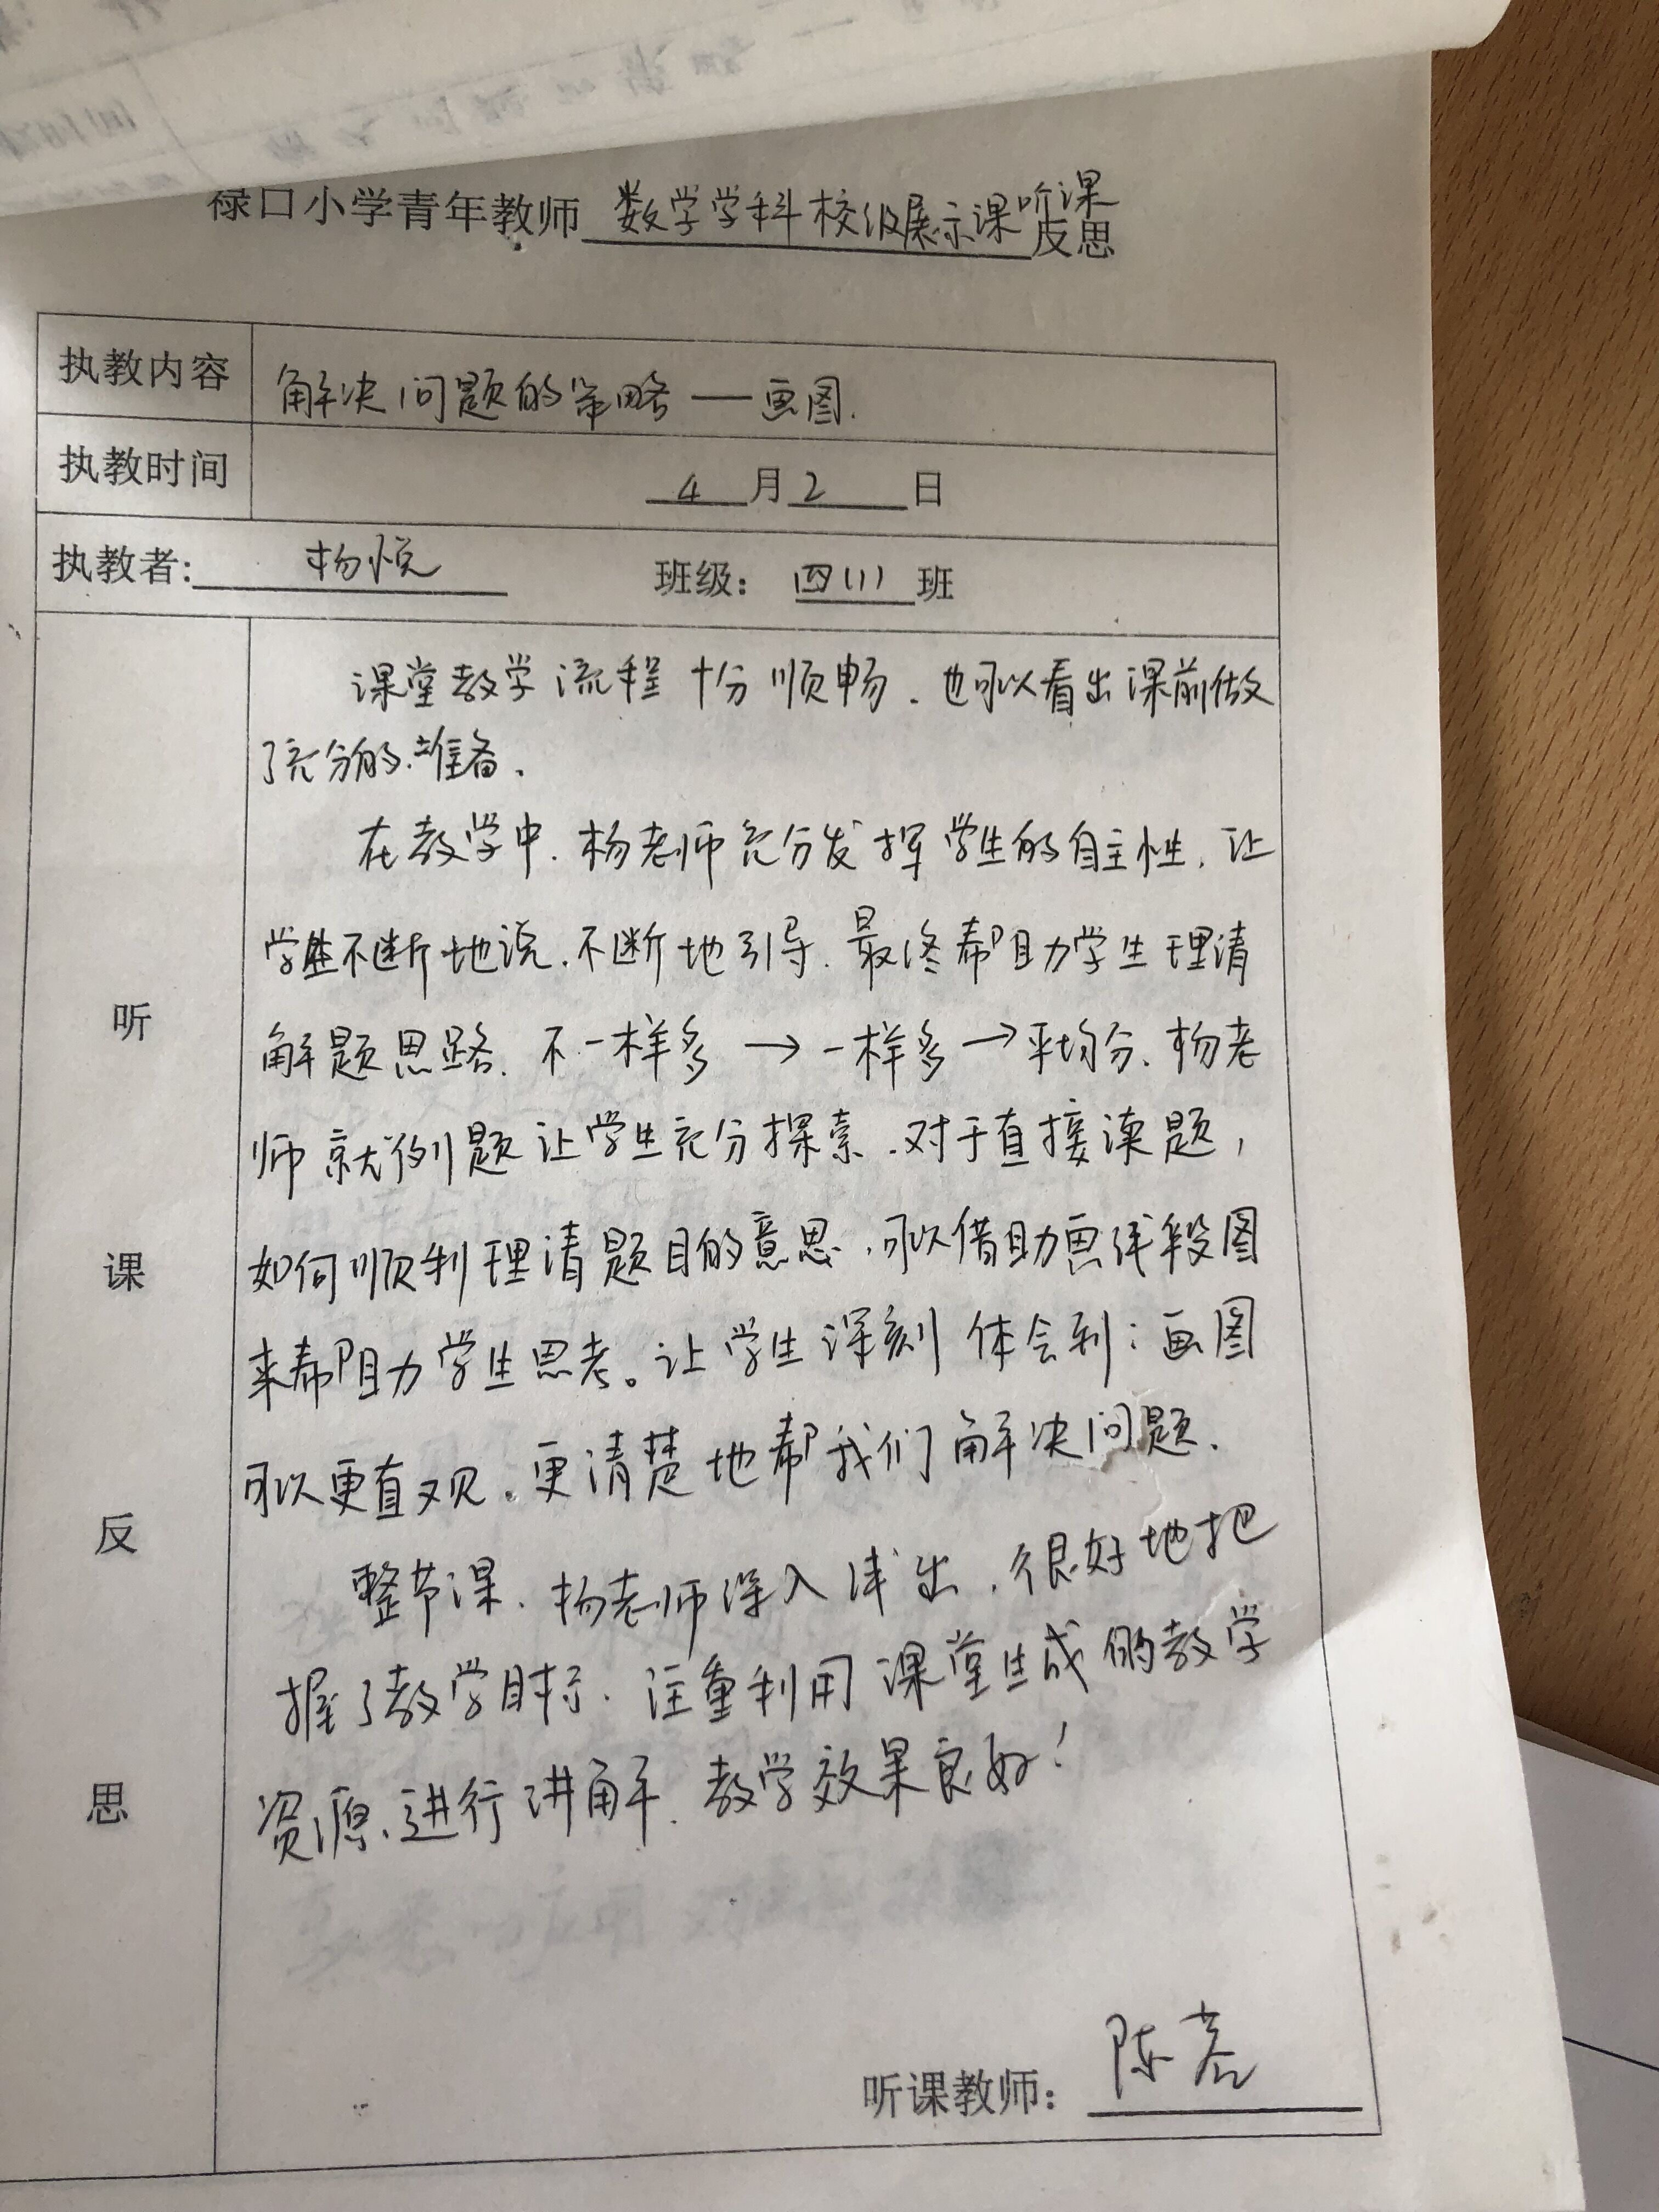 禄口小学青年教师 数学学科校级展示课听课反思
执教内容 解决问题的策略——画图.
执教时间 4月2日
执教者: 杨悦 班级: 四(1)班
听课反思
课堂教学流程十分顺畍.也可以看出课前做
了充分的准备.
在教学中.杨老师充分发挥学生的自主性.让
学生不断地说.不断地引导.最终帮助学生理清
解题思路.不一样多→一样多→平均分.杨老
师就例题让学生充分探索.对于直接读题,
如何顺利理清题目的意思.可以借助画线段图
来帮助学生思考。让学生深刻体会到:画图
可以更直观.更清楚地帮我们解决问题.
整节课.杨老师深入浅出.很好地把
握了教学目标.注重利用课堂生成的教学
资源.进行讲解.教学效果良好!
听课教师: 陈